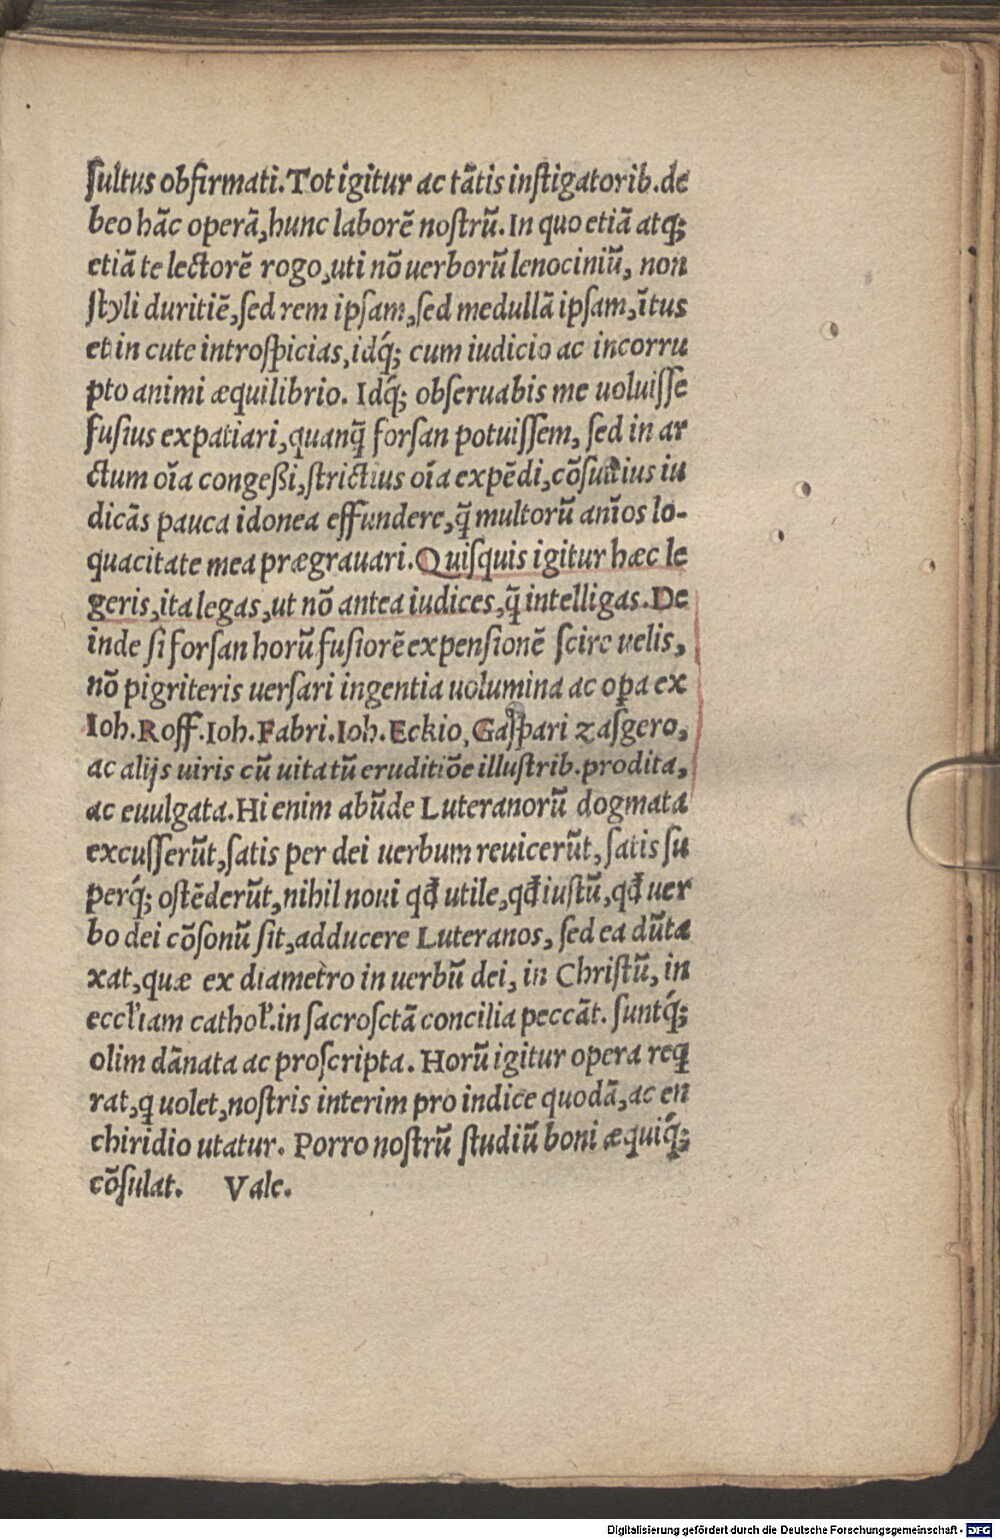 ſultus obfirmati. Tot igitur ac tātis inſtigatorib. de
beo hāc operā, hunc laborē noſtrū. In quo etiā atq́;
etiā te lectorē rogo, uti nō uerborū lenociniū, non
ſtyli duritiē, ſed rem ipſam, ſed medullā ipſam, ītus
et in cute introſpicias, idq́; cum iudicio ac incorru
pto animi æquilibrio. Idq́; obſeruabis me uoluiſſe
fuſius expatiari, quanq̄ forſan potuiſſem, ſed in ar
ctum oīa congeßi, ſtrictius oīa expēdi, cōſultius iu
dicās pauca idonea effundere, q̄ multorū anīos lo-
quacitate mea prægrauari. Quiſquis igitur hæc le
geris, ita legas, ut nō antea iudices, q̄ intelligas. De
inde ſi forſan horū fuſiorē expenſionē ſcire uelis,
nō pigriteris uerſari ingentia uolumina ac oꝑa ex
Ioh. Roff. Ioh. Fabri. Ioh. Eckio, Gaſpari zaſgero,
ac alijs uiris cū uita tū eruditiōe illuſtrib. prodita,
ac euulgata. Hi enim abūde Luteranorū dogmata
excuſſerūt, ſatis per dei uerbum reuicerūt, ſatis ſu
perq́; oſtēderūt, nihil noui qđ utile, qđ iuſtū, qđ uer
bo dei cōſonū ſit, adducere Luteranos, ſed ea dūta
xat, quæ ex diametro in uerbū dei, in Chriſtū, in
eccłiam cathoł. in ſacroſctā concilia peccāt. ſuntq́;
olim dānata ac proſcripta. Horū igitur opera reꝗ
rat, ꝗ uolet, noſtris interim pro indice quodā, ac en
chiridio utatur. Porro noſtrū ſtudiū boni æquiq́;
cōſulat. Vale.
Digitalisierung gefördert durch die Deutsche Forschungsgemeinschaft - DFG